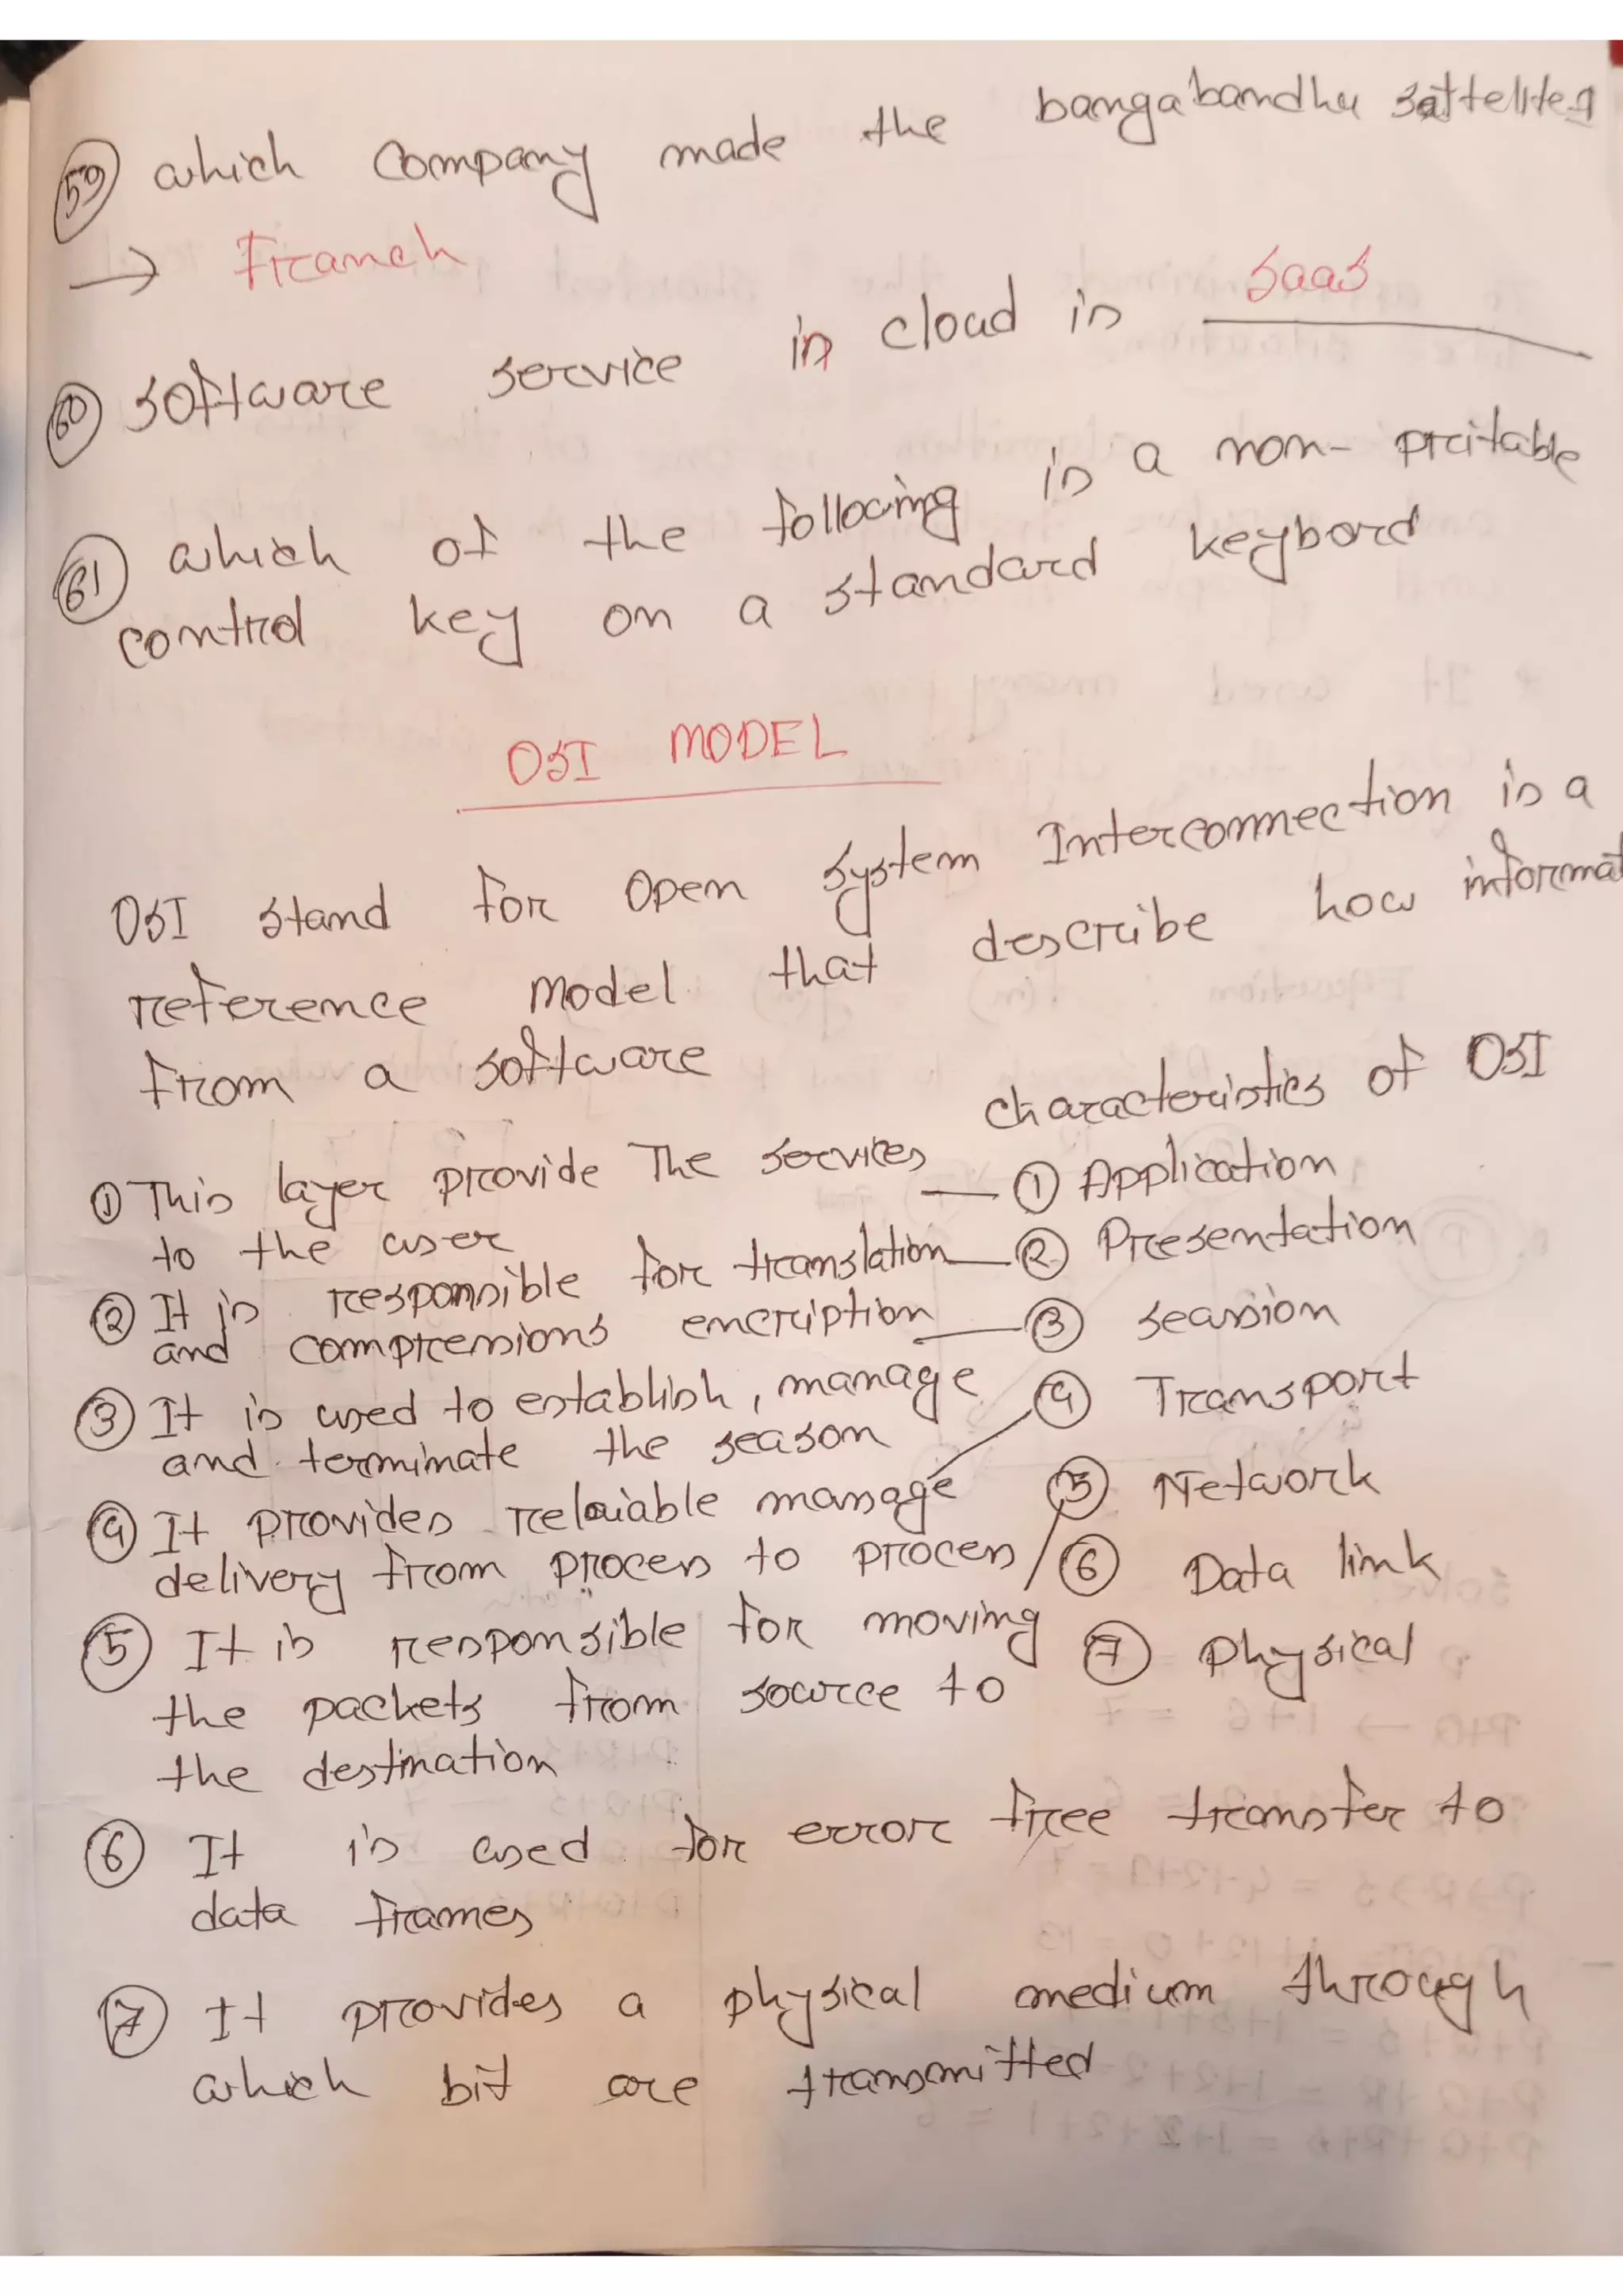 59 which company made the bangabandhu sattelites
→ Franch
60 software service in cloud is saas
61 which of the following is a non-pritable
control key on a standard keybord
OSI MODEL
OSI stand for open system Interconnection is a
reference model that describe how informat
from a software
characteristics of OSI
① This layer provide The services — ① Application
to the user
② It is responsible for translation — ② Presentation
and compressions encription — ③ seassion
③ It is used to establish, manage ④ Transport
and terminate the season
④ It provides relaiable manage ⑤ Network
delivery from process to process ⑥ Data link
⑤ It is responsible for moving ⑦ physical
the packets from source to
the destination
⑥ It is used for error free transfer to
data frames
⑦ It provides a physical medium through
which bit are transmitted